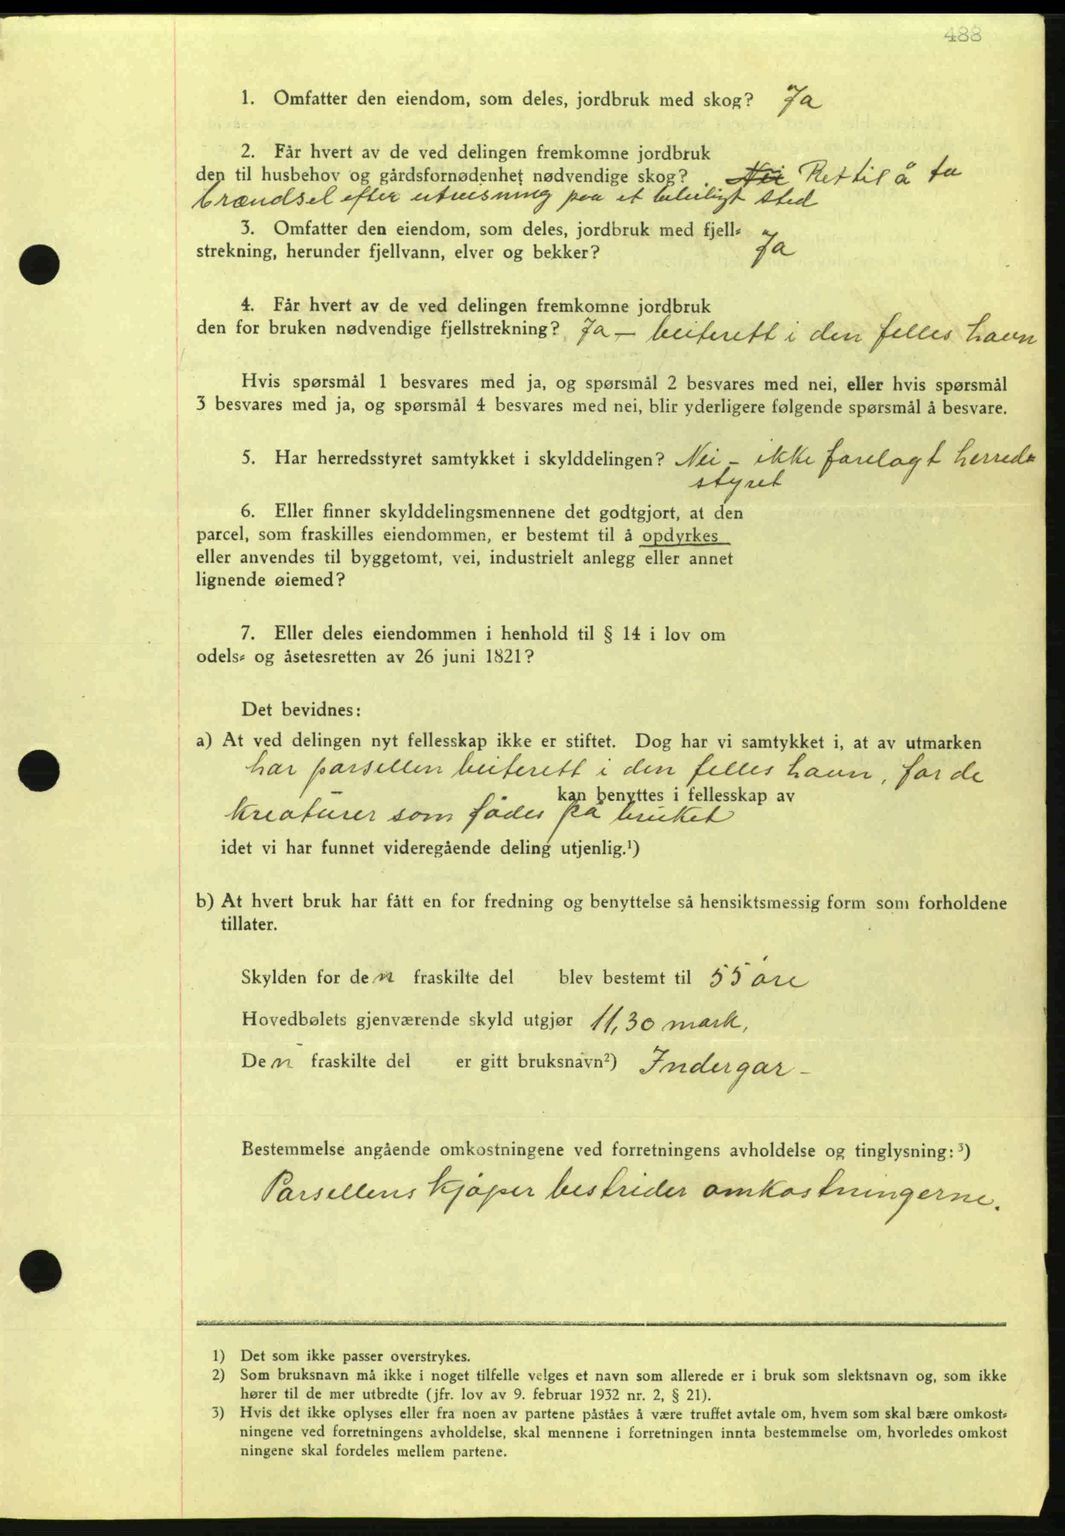 488
1. Omfatter den eiendom, som deles, jordbruk med skog? Ja
2. Får hvert av de ved delingen fremkomne jordbruk
den til husbehov og gårdsfornødenhet nødvendige skog? Nei Ret til å ta
brændsel efter utvisning paa et beleiligt sted
3. Omfatter den eiendom, som deles, jordbruk med fjell-
strekning, herunder fjellvann, elver og bekker? Ja
4. Får hvert av de ved delingen fremkomne jordbruk
den for bruken nødvendige fjellstrekning? Ja – beiterett i den felles havn
Hvis spørsmål 1 besvares med ja, og spørsmål 2 besvares med nei, eller hvis spørsmål
3 besvares med ja, og spørsmål 4 besvares med nei, blir yderligere følgende spørsmål å besvare.
5. Har herredsstyret samtykket i skylddelingen? Nei – ikke forelagt herred-
styret
6. Eller finner skylddelingsmennene det godtgjort, at den
parcel, som fraskilles eiendommen, er bestemt til å opdyrkes
eller anvendes til byggetomt, vei, industrielt anlegg eller annet
lignende øiemed?
7. Eller deles eiendommen i henhold til § 14 i lov om
odels- og åsetesretten av 26 juni 1821?
Det bevidnes:
a) At ved delingen nyt fellesskap ikke er stiftet. Dog har vi samtykket i, at av utmarken
har parsellen beiterett i den felles havn, for de
kan benyttes i fellesskap av
kreaturer som fødes på bruket
idet vi har funnet videregående deling utjenlig.¹)
b) At hvert bruk har fått en for fredning og benyttelse så hensiktsmessig form som forholdene
tillater.
Skylden for den fraskilte del blev bestemt til 55 øre
Hovedbølets gjenværende skyld utgjør 11,30 mark,
Den fraskilte del er gitt bruksnavn²) Indergar –
Bestemmelse angående omkostningene ved forretningens avholdelse og tinglysning:³)
Parsellens kjøper bestrider omkostningerne.
1) Det som ikke passer overstrykes.
2) Som bruksnavn må ikke i noget tilfelle velges et navn som allerede er i bruk som slektsnavn og, som ikke
hører til de mer utbredte (jfr. lov av 9. februar 1932 nr. 2, § 21).
3) Hvis det ikke oplyses eller fra noen av partene påståes å være truffet avtale om, hvem som skal bære omkost-
ningene ved forretningens avholdelse, skal mennene i forretningen innta bestemmelse om, hvorledes omkost
ningene skal fordeles mellem partene.